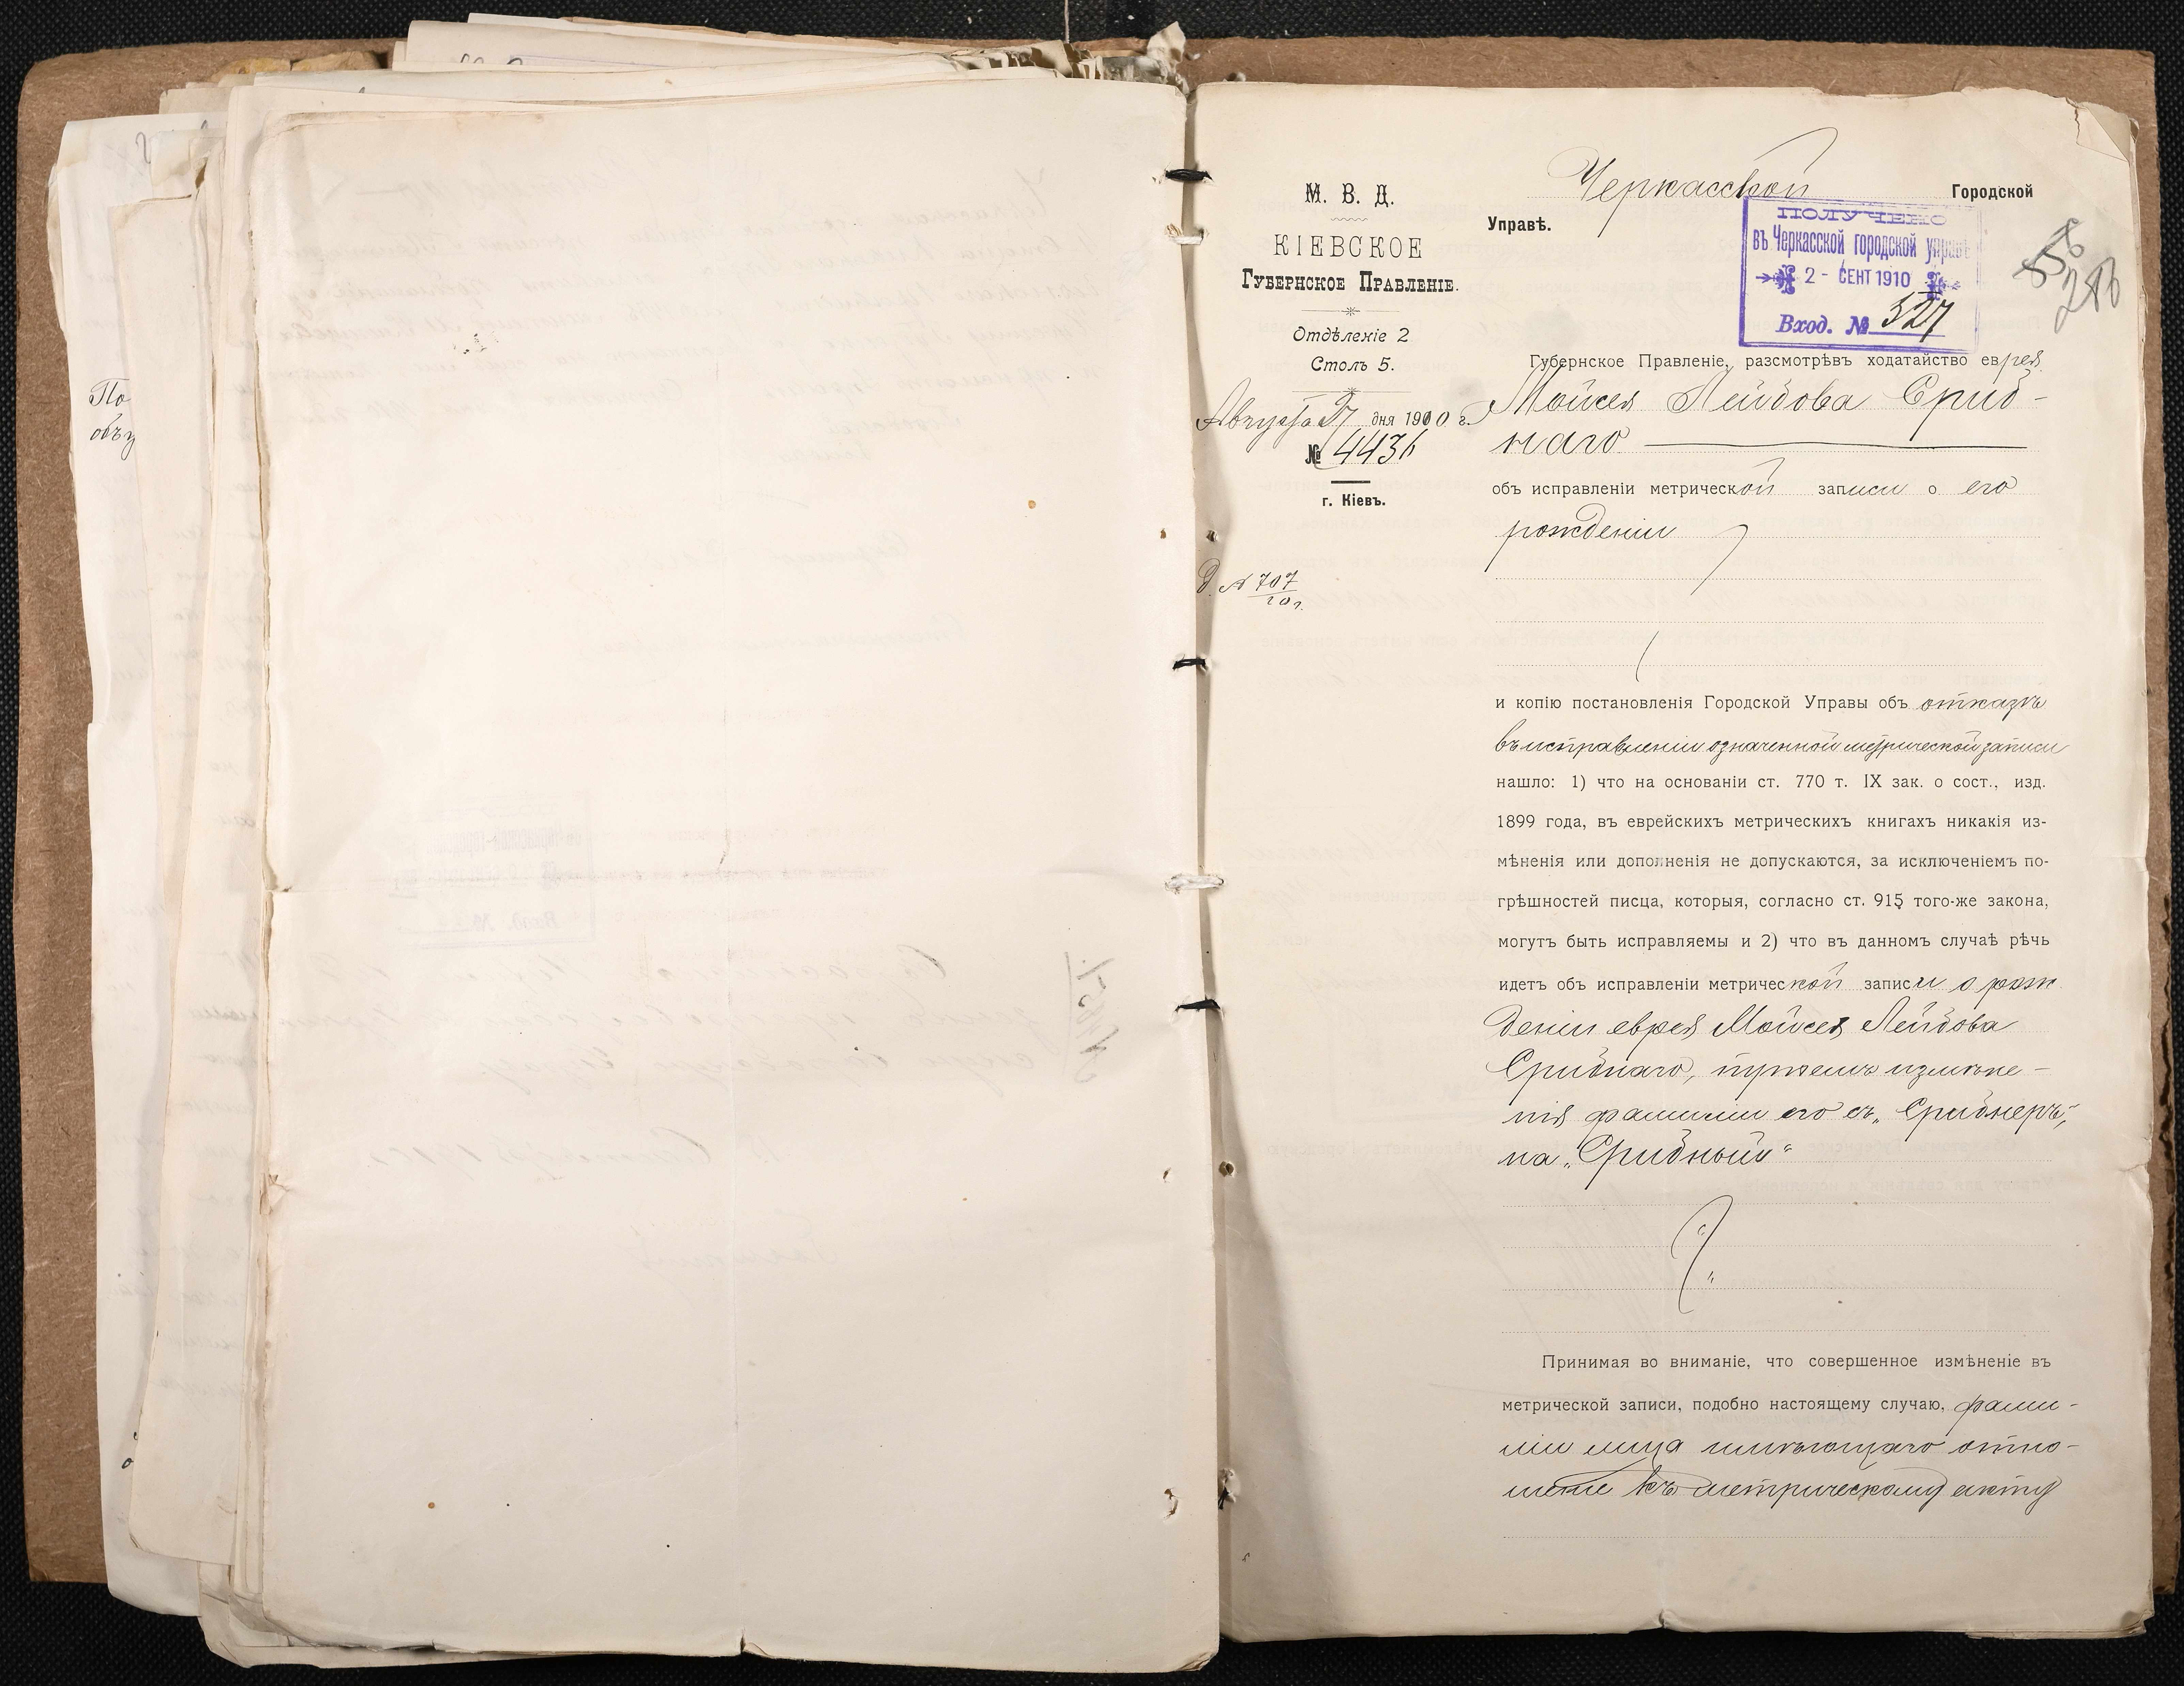 По
объу
М. В. Д.
КІЕВСКОЕ
ГУБЕРНСКОЕ ПРАВЛЕНІЕ.
Отдѣленіе 2
Столъ 5.
Августа 27 дня 1910 г.
№ 4431
г. Кіевъ.
Д. № 707
10 г.
Черкасской Городской
Управѣ.
ПОЛУЧЕНО
въ Черкасской городской управѣ
2 - СЕНТ 1910
Вход. № 527
Губернское Правленіе, разсмотрѣвъ ходатайство еврея
Мойсея Лейбова Сриб-
наго
объ исправленіи метрической записи о его
рожденіи
и копію постановленія Городской Управы объ отказѣ
въ исправленіи означенной метрической записи
нашло: 1) что на основаніи ст. 770 т. IX зак. о сост., изд.
1899 года, въ еврейскихъ метрическихъ книгахъ никакія из-
мѣненія или дополненія не допускаются, за исключеніемъ по-
грѣшностей писца, которыя, согласно ст. 915 того-же закона,
могутъ быть исправляемы и 2) что въ данномъ случаѣ рѣчь
идетъ объ исправленіи метрической записи о рож
деніи еврея Мойсея Лейбова
Срибнаго, путемъ измѣне-
нія фамиліи его съ „Срибнеръ"
на „Срибный"
Принимая во вниманіе, что совершенное измѣненіе въ
метрической записи, подобно настоящему случаю, фами-
ліи лица имѣющаго отно-
шеніе къ метрическому акту